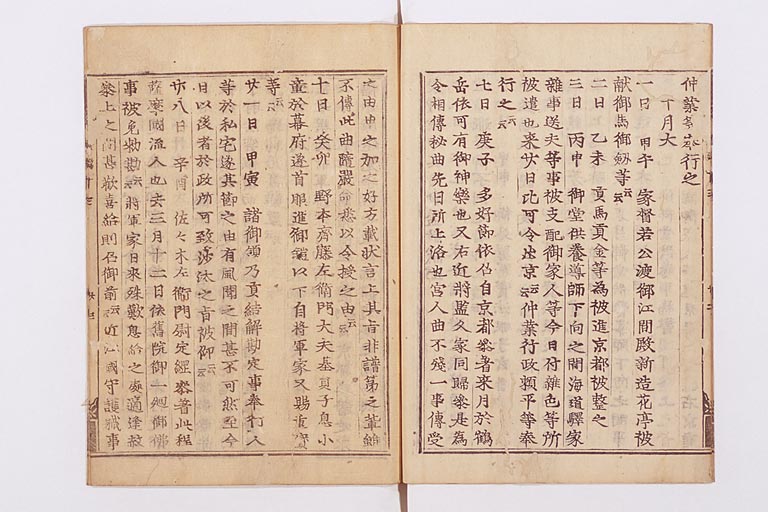 仲業等奉行之
十月大
一日 甲午 家督若公渡御江間殿新造花亭被
献御馬御劔等云云
二日 乙未 貢馬貢金等為被進京都被整之
三日 丙申 御堂供養導師下向之間海道驛家
雜事送夫等事被支配御家人等今日付雜色等所
被遣也来廿日比可令出京云云仲業行政頼平等奉
行之云云
七日 庚子 多好節依召自京都参著来月於鶴
岳依可有御神樂也又右近將監久家同歸参是為
令相傳秘曲先日所上洛也宮人曲不殘一事傳受
之由申之加之好方載状言上其旨非譜第之輩雖
不傳此曲随嚴命悉以令授之由云云
十日 癸卯 野本齋藤左衛門大夫基員子息小
童於幕府遂首服進御鎧以下自將軍家又賜重寳
等云云
廿一日 甲寅 諸御領乃貢結解勘定事奉行人
等於私宅遂其節之由有風聞之間甚不可然至今
日以後者於政所可致沙汰之旨被仰云云
廿八日 辛酉 佐々木左衛門尉定經参著此程
薩摩國流人也去三月十二日依舊院御一廻御佛
事被免勅勘云云將軍家日来殊歎息給之處適逢赦
参上之間甚歡喜給則召御前云云近江國守護職事